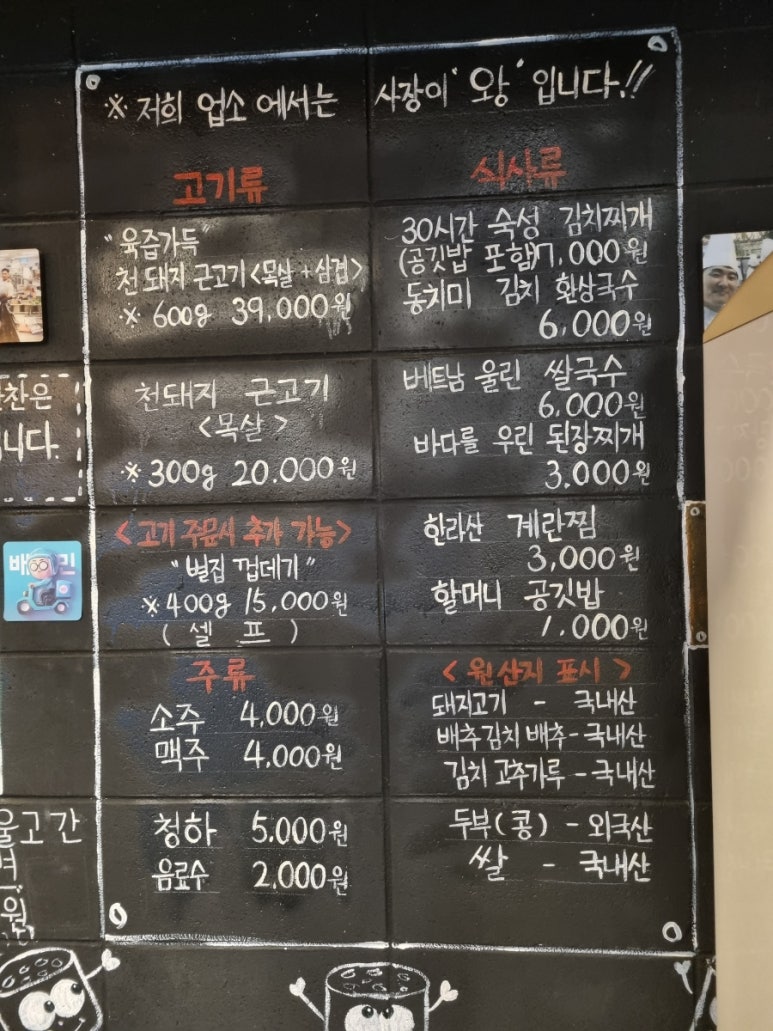 ※ 저희 업소 에서는 사장이 '왕' 입니다.!!
고기류
"육즙가득"
천돼지 근고기<목살+삼겹>
※ 600g 39,000원
천돼지 근고기
<목살>
※ 300g 20.000원
<고기 주문시 추가 가능>
"벌집 껍데기"
※400g 15,000원
(셀 프)
주류
소주 4,000원
맥주 4,000원
청하 5.000원
음료수 2,000원
식사류
30시간 숙성 김치찌개
(공깃밥 포함)7,000원
동치미 김치 환상국수
6,000원
베트남 울린 쌀국수
6,000원
바다를 우린 된장찌개
3.000원
한라산 계란찜
3,000원
할머니 공깃밥
1.000원
<원산지 표시>
돼지고기 - 국내산
배추김치 배추-국내산
김치 고추가루-국내산
두부(콩) - 외국산
쌀 - 국내산
찬은
니다.
배 민
울고 간
원